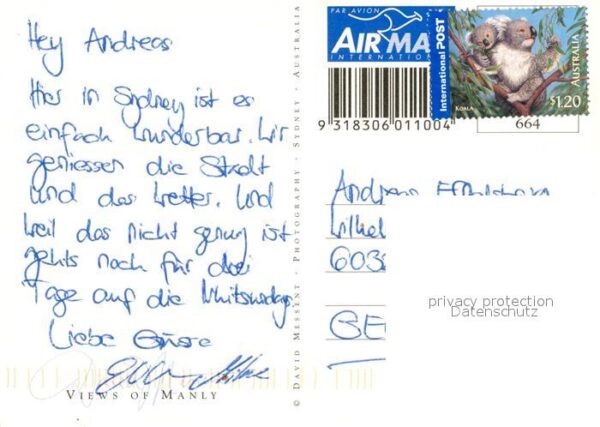 Hey Andreas
Hier in Sydney ist es
einfach wunderbar. Wir
geniessen die Stadt
und das Wetter. Und
weil das nicht genug ist
gehts noch für drei
Tage auf die Whitsundays
Liebe Grüsse
VIEWS OF MANLY
© DAVID MESSENT PHOTOGRAPHY · SYDNEY · AUSTRALIA
PAR AVION
AIR MA
INTERNATION
9 318306 011004
International POST
KOALA
AUSTRALIA
$1.20
664
Andreas
603
GE
privacy protection
Datenschutz